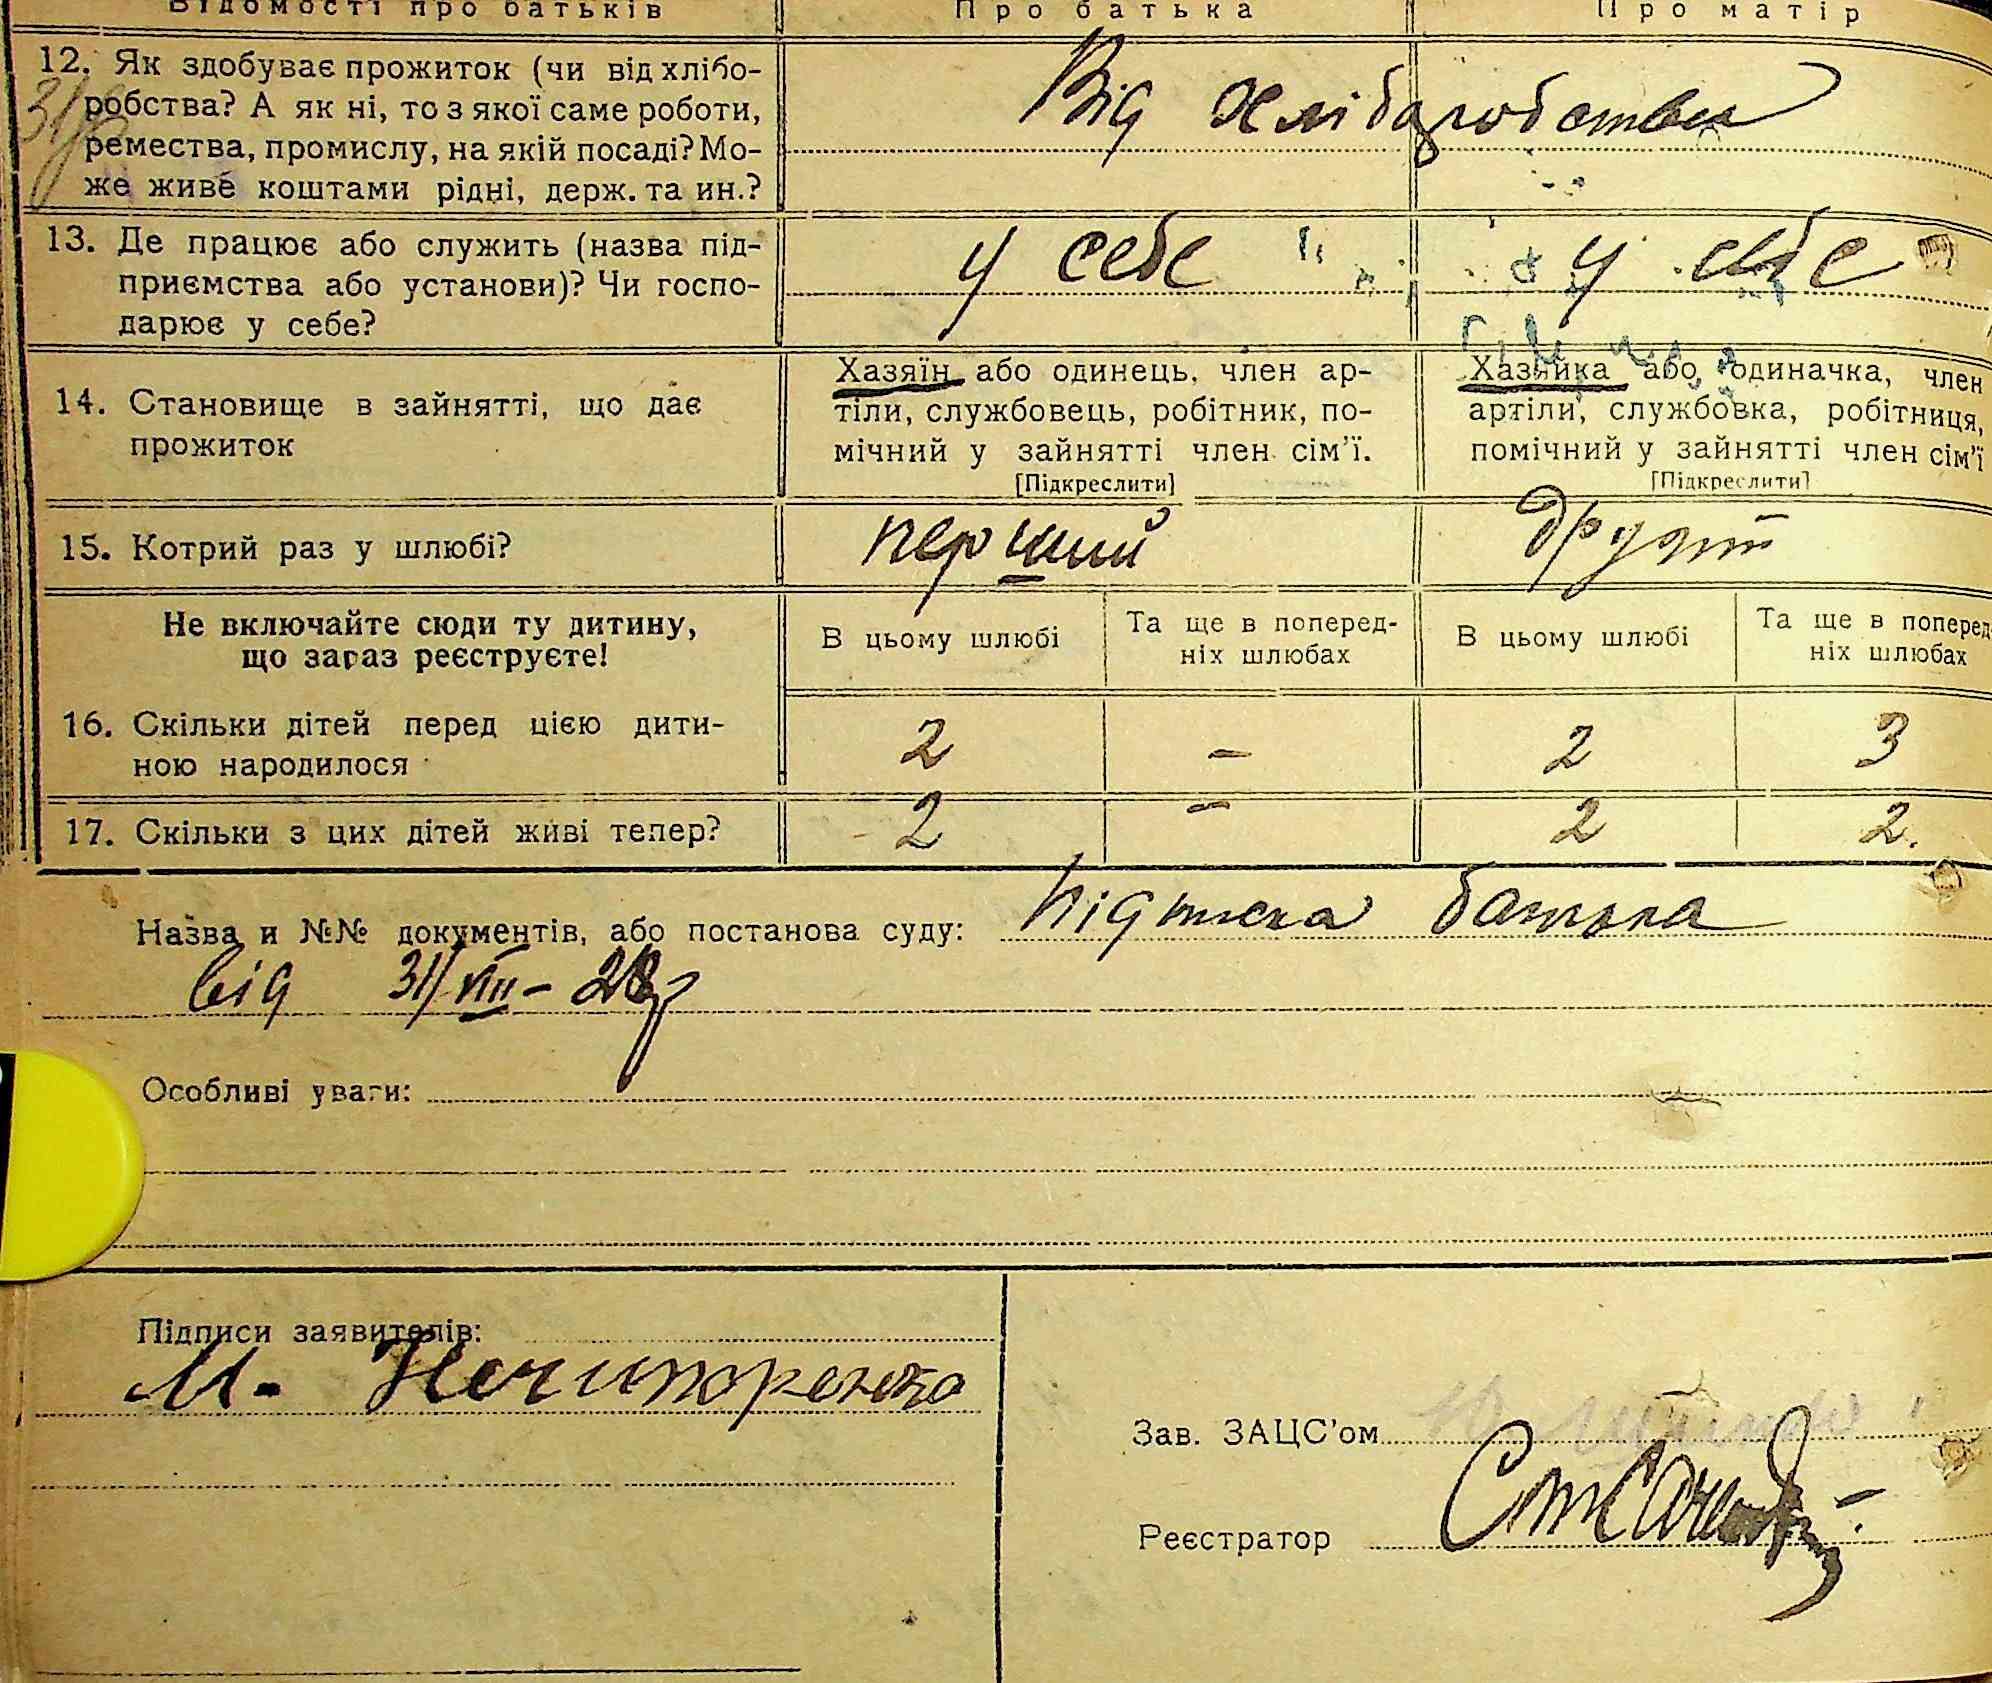 Відомості про батьків Про батька Про матір
12. Як здобуває прожиток (чи від хлібо-
робства? А як ні, то з якої саме роботи,
ремества, промислу, на якій посаді? Мо-
же живе коштами рідні, держ. та ин.?
Від хліборобства
13. Де працює або служить (назва під-
приємства або установи)? Чи госпо-
дарює у себе?
у себе у себе
14. Становище в зайнятті, що дає
прожиток
Хазяїн або одинець, член ар-
тіли, службовець, робітник, по-
мічний у зайнятті член сім'ї.
[Підкреслити]
Хазяйка або одиначка, член
артіли, службовка, робітниця,
помічний у зайнятті член сім'ї
[Підкреслити]
15. Котрий раз у шлюбі? перший другий
Не включайте сюди ту дитину,
що зараз реєструєте!
В цьому шлюбі
Та ще в поперед-
ніх шлюбах
В цьому шлюбі
Та ще в поперед-
ніх шлюбах
16. Скільки дітей перед цією дити-
ною народилося
2 – 2 3
17. Скільки з цих дітей живі тепер? 2 – 2 2.
Назва и №№ документів, або постанова суду: підписка батька
від 31/VIII – 28р
Особливі уваги:
Підписи заявителів:
М. Нечипоренко
Зав. ЗАЦС'ом
Реєстратор